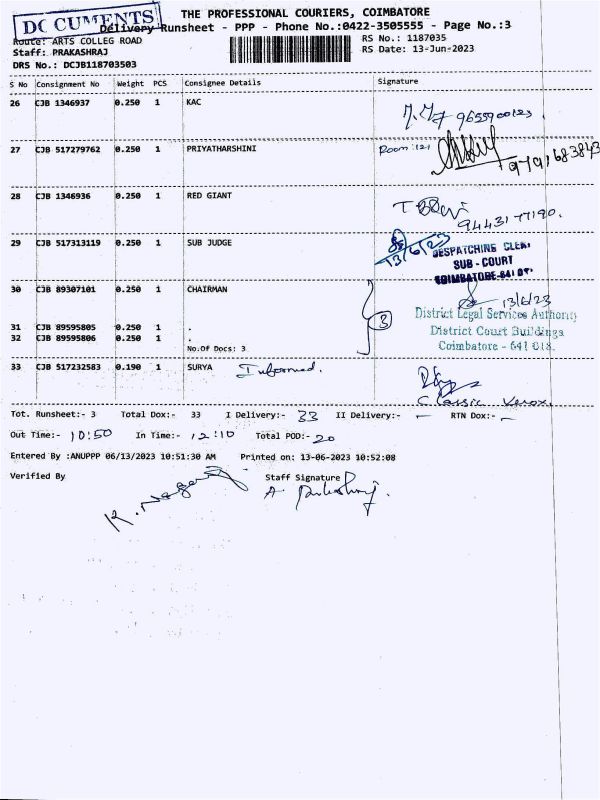 DOCUMENTS
THE PROFESSIONAL COURIERS, COIMBATORE
Delivery Runsheet - PPP - Phone No.:0422-3505555 - Page No.:3
Route: ARTS COLLEG ROAD
RS No.: 1187035
Staff: PRAKASHRAJ
RS Date: 13-Jun-2023
DRS No.: DCJB118703503
S No Consignment No Weight PCS Consignee Details Signature
26 CJB 1346937 0.250 1 KAC
9655900123
27 CJB 517279762 0.250 1 PRIYATHARSHINI Room :121
9791683843
28 CJB 1346936 0.250 1 RED GIANT
9443177190.
29 CJB 517313119 0.250 1 SUB JUDGE
13/6/23
DESPATCHING CLERK
SUB - COURT
COIMBATORE-641 01
30 CJB 89307101 0.250 1 CHAIRMAN
13/6/23
District Legal Services Authority
31 CJB 89595805 0.250 1 . 3
District Court Buildings
32 CJB 89595806 0.250 1 .
Coimbatore - 641 018.
No.Of Docs: 3
33 CJB 517232583 0.190 1 SURYA Informed.
Classic Xerox
Tot. Runsheet:- 3 Total Dox:- 33 I Delivery:- 33 II Delivery:- - RTN Dox:- -
Out Time:- 10:50 In Time:- 12:10 Total POD:- 20
Entered By :ANUPPP 06/13/2023 10:51:30 AM Printed on: 13-06-2023 10:52:08
Verified By Staff Signature